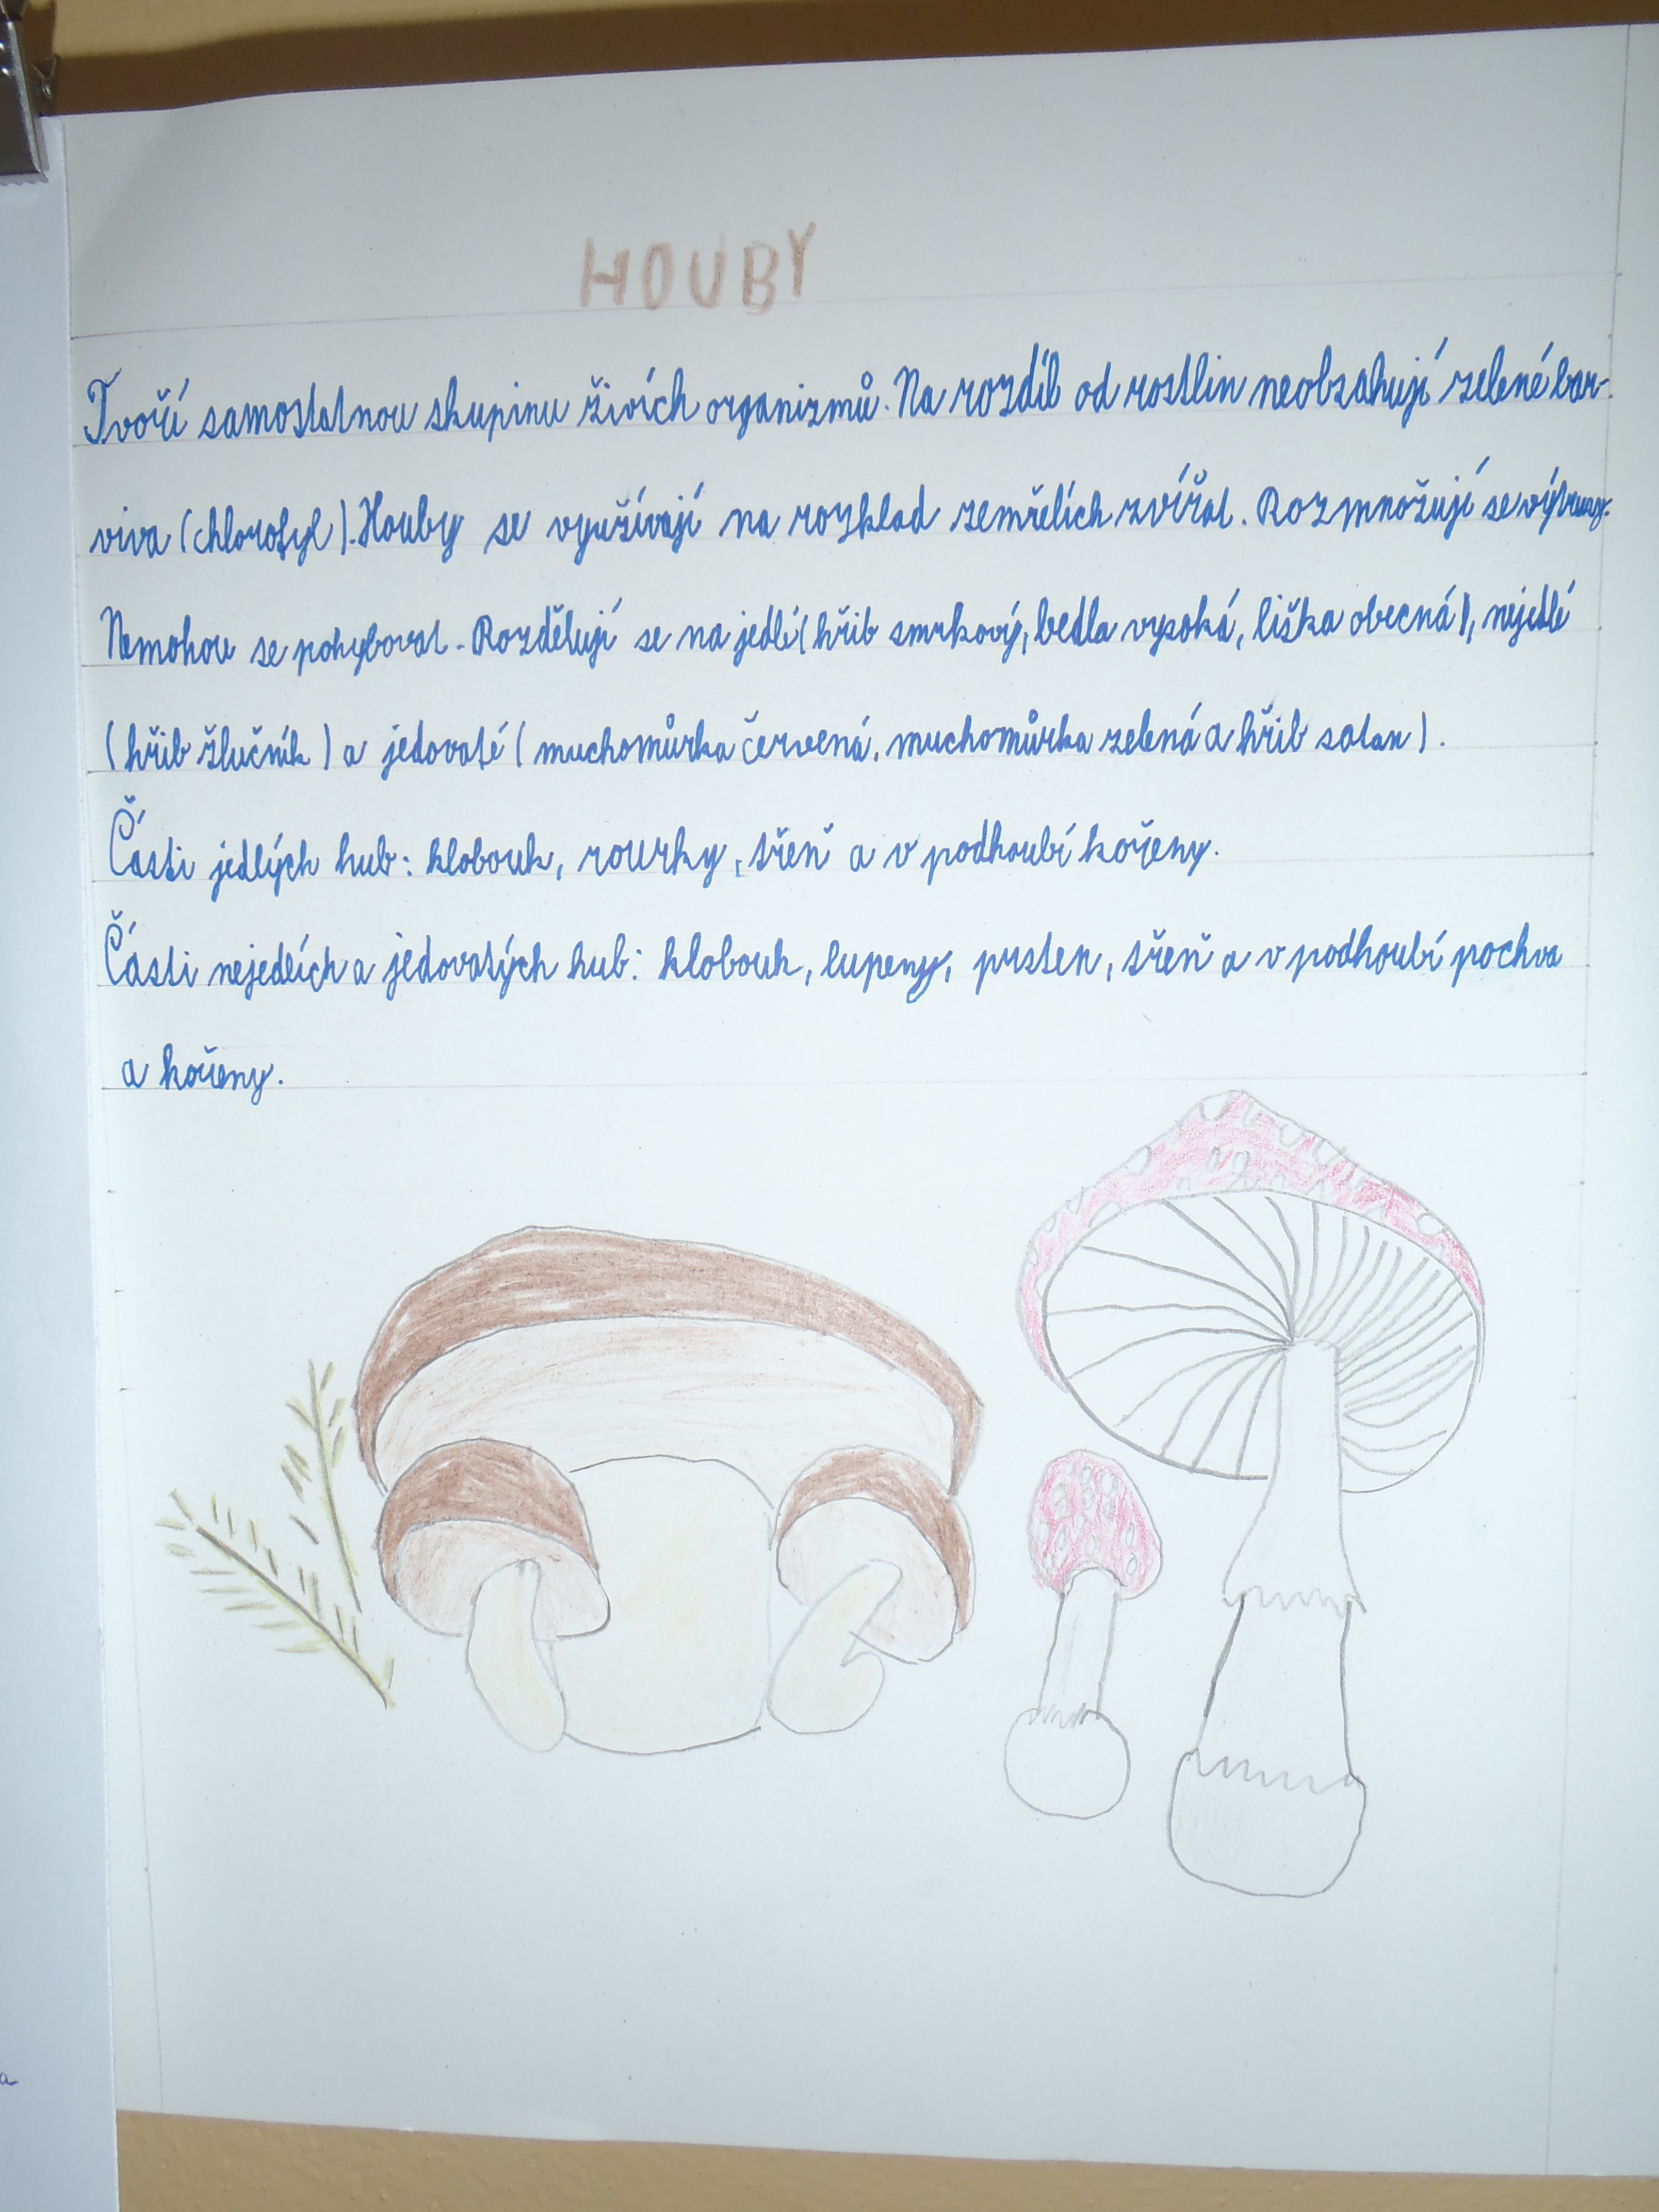 HOUBY
Tvoří samostatnou skupinu živích organizmů. Na rozdíl od rostlin neobsahují zelené bar-
viva (chlorofyl). Houby se využívají na rozklad zemřelích zvířat. Rozmnožují se výtrusy.
Nemohou se pohybovat. Rozdělují se na jedlé (hřib smrkový, bedla vysoká, liška obecná), nejedlé
(hřib žlučník) a jedovaté (muchomůrka červená, muchomůrka zelená a hřib satan).
Části jedlých hub: klobouk, rourky, třeň a v podhoubí kořeny.
Části nejedlích a jedovatých hub: klobouk, lupeny, prsten, třeň a v podhoubí pochva
a kořeny.
a